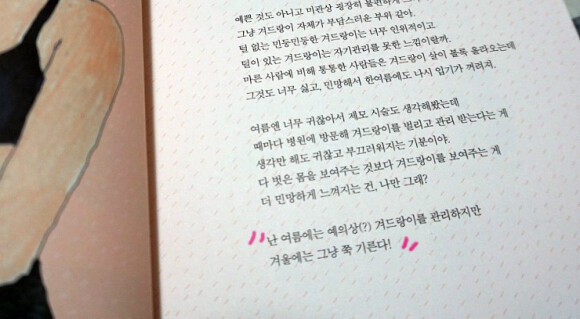 예쁜 것도 아니고 미관상 굉장히 불편하게
그냥 겨드랑이 자체가 부담스러운 부위 같아.
털 없는 민둥민둥한 겨드랑이는 너무 인위적이고
털이 있는 겨드랑이는 자기관리를 못한 느낌이랄까.
마른 사람에 비해 통통한 사람들은 겨드랑이 살이 볼록 올라오는데
그것도 너무 싫고, 민망해서 한여름에도 나시 입기가 꺼려져.
여름엔 너무 귀찮아서 제모 시술도 생각해봤는데
때마다 병원에 방문해 겨드랑이를 벌리고 관리 받는다는 게
생각만 해도 귀찮고 부끄러워지는 기분이야.
다 벗은 몸을 보여주는 것보다 겨드랑이를 보여주는 게
더 민망하게 느껴지는 건, 나만 그래?
난 여름에는 예의상(?) 겨드랑이를 관리하지만
겨울에는 그냥 쭉 기른다!